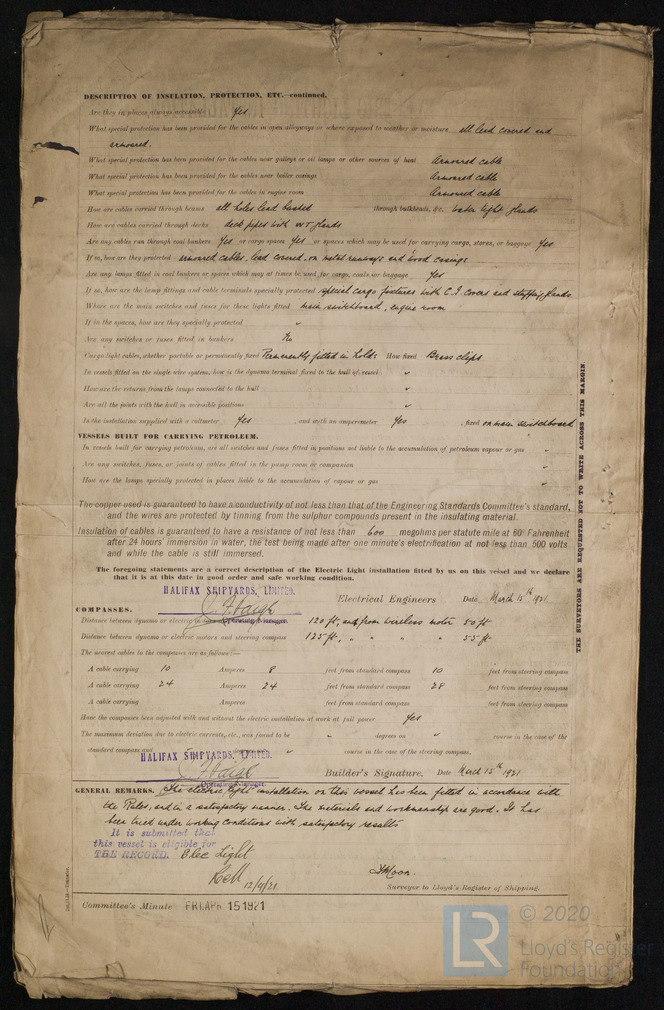 DESCRIPTION OF INSULATION, PROTECTION, ETC.—continued.
Are they in places always accessible Yes
What special protection has been provided for the cables in open alleyways or where exposed to weather or moisture all lead covered and
armoured.
What special protection has been provided for the cables near galleys or oil lamps or other sources of heat Armoured cable
What special protection has been provided for the cables near boiler casings Armoured cable
What special protection has been provided for the cables in engine room Armoured cable
How are cables carried through beams all holes lead bushed through bulkheads, &c. water tight glands
How are cables carried through decks deck pipes with WT glands
Are any cables run through coal bunkers Yes or cargo spaces Yes or spaces which may be used for carrying cargo, stores, or baggage Yes
If so, how are they protected armoured cables, lead covered, on metal runways and wood casings
Are any lamps fitted in coal bunkers or spaces which may at times be used for cargo, coals, or baggage Yes
If so, how are the lamp fittings and cable terminals specially protected special cargo fixtures with C.I covers and stuffing glands
Where are the main switches and fuses for these lights fitted main switchboard, engine room
If in the spaces, how are they specially protected "
Are any switches or fuses fitted in bunkers No
Cargo light cables, whether portable or permanently fixed Permanently fitted in holds How fixed Brass clips
In vessels fitted on the single wire system, how is the dynamo terminal fixed to the hull of vessel "
How are the returns from the lamps connected to the hull "
Are all the joints with the hull in accessible positions "
Is the installation supplied with a voltmeter Yes , and with an amperemeter Yes , fixed on main switchboard
VESSELS BUILT FOR CARRYING PETROLEUM.
In vessels built for carrying petroleum, are all switches and fuses fitted in positions not liable to the accumulation of petroleum vapour or gas "
Are any switches, fuses, or joints of cables fitted in the pump room or companion "
How are the lamps specially protected in places liable to the accumulation of vapour or gas "
The copper used is guaranteed to have a conductivity of not less than that of the Engineering Standards Committee's standard,
and the wires are protected by tinning from the sulphur compounds present in the insulating material.
Insulation of cables is guaranteed to have a resistance of not less than 600 megohms per statute mile at 60° Fahrenheit
after 24 hours' immersion in water, the test being made after one minute's electrification at not less than 500 volts
and while the cable is still immersed.
The foregoing statements are a correct description of the Electric Light installation fitted by us on this vessel and we declare
that it is at this date in good order and safe working condition.
HALIFAX SHIPYARDS, LIMITED.
Electrical Engineers Date March 15th 1921
COMPASSES.
Distance between dynamo or electric motors and standard compass 120 ft, and from wireless motor 50 ft
Distance between dynamo or electric motors and steering compass 125 ft, " " " " 55 ft
The nearest cables to the compasses are as follows:—
A cable carrying 10 Amperes 8 feet from standard compass 10 feet from steering compass
A cable carrying 24 Amperes 24 feet from standard compass 28 feet from steering compass
A cable carrying Amperes feet from standard compass feet from steering compass
Have the compasses been adjusted with and without the electric installation at work at full power Yes
The maximum deviation due to electric currents, etc., was found to be " degrees on " course in the case of the
standard compass and " course in the case of the steering compass.
HALIFAX SHIPYARDS, LIMITED.
Builder's Signature. Date March 15th 1921
GENERAL REMARKS. The electric light installation on this vessel has been fitted in accordance with
the Rules, and in a satisfactory manner. The materials and workmanship are good. It has
been tried under working conditions with satisfactory results
It is submitted that
this vessel is eligible for
THE RECORD. Elec Light
12/4/21
Surveyor to Lloyd's Register of Shipping.
Committee's Minute FRI. APR 15 1921
THE SURVEYORS ARE REQUESTED NOT TO WRITE ACROSS THIS MARGIN
LR
© 2020
Lloyd's Register
Foundation